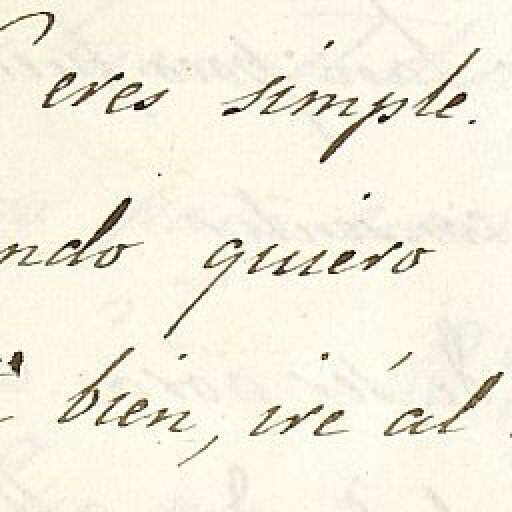 eres simple.
ndo quiero
bien, iré al